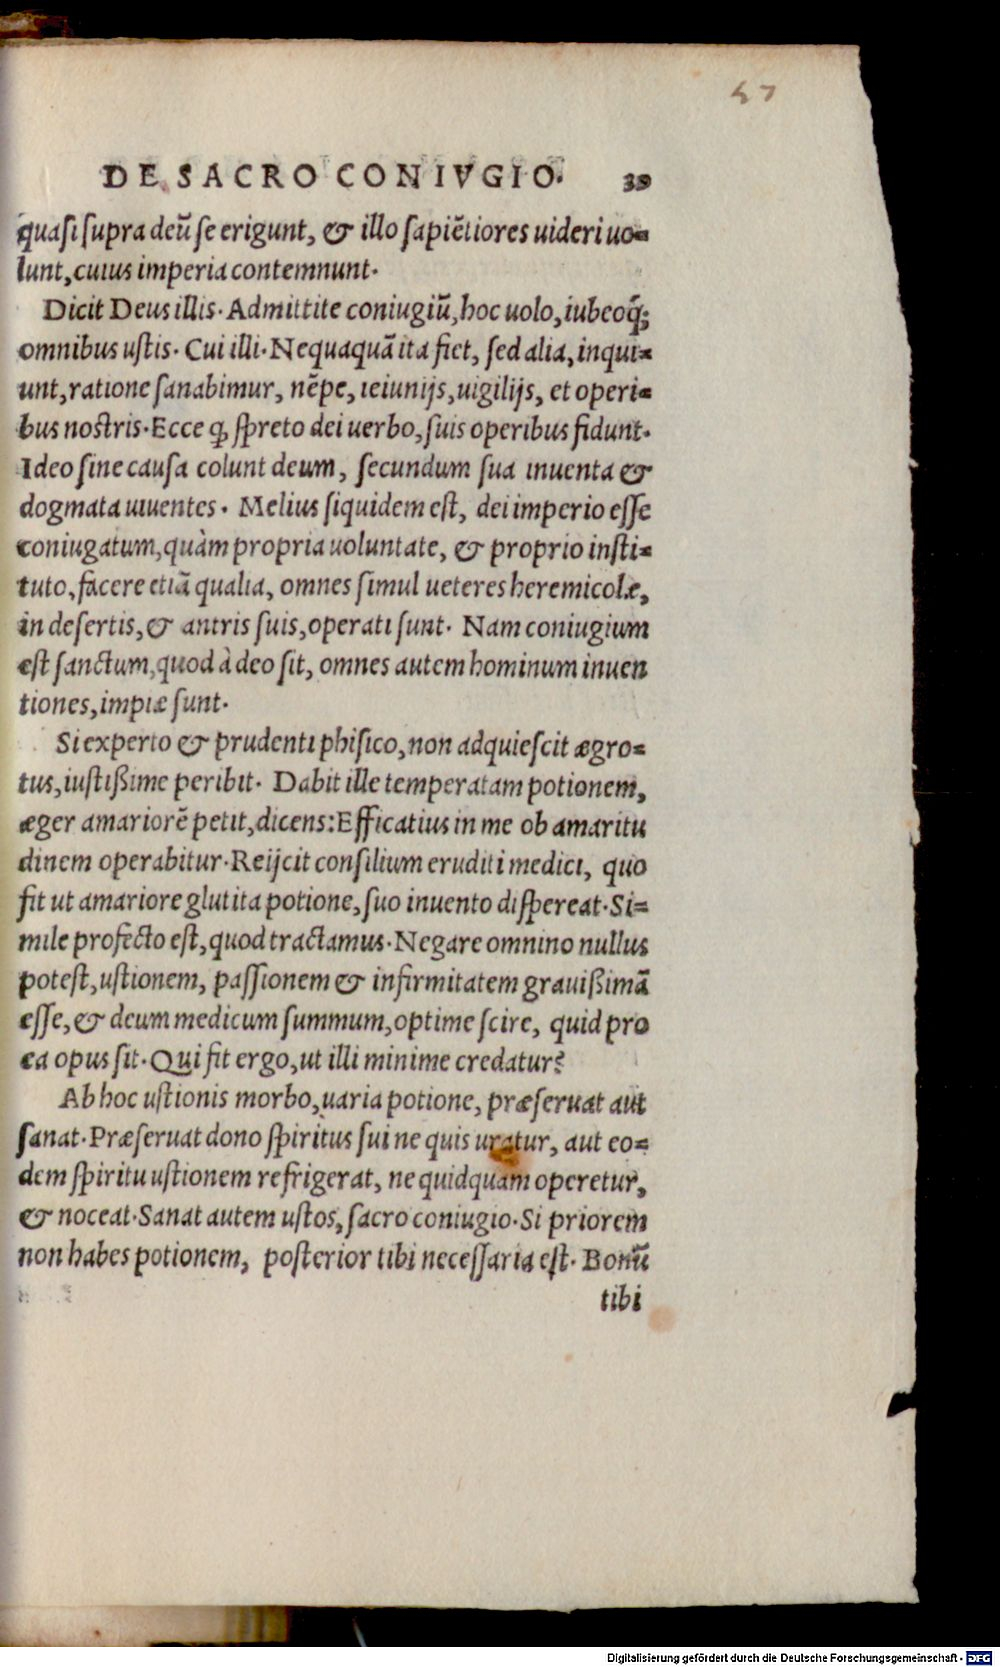 57
DE SACRO CONIVGIO. 39
quasi supra deū se erigunt, & illo sapiētiores uideri uo=
lunt, cuius imperia contemnunt.
Dicit Deus illis. Admittite coniugiū, hoc uolo, iubeoq;
omnibus ustis. Cui illi. Nequaquā ita fiet, sed alia, inqui=
unt, ratione sanabimur, nēpe, ieiunijs, uigilijs, et operi=
bus nostris. Ecce ꝙ spreto dei uerbo, suis operibus fidunt.
Ideo sine causa colunt deum, secundum sua inuenta &
dogmata uiuentes. Melius siquidem est, dei imperio esse
coniugatum, quàm propria uoluntate, & proprio insti=
tuto, facere etiā qualia, omnes simul ueteres heremicolæ,
in desertis, & antris suis, operati sunt. Nam coniugium
est sanctum, quod à deo sit, omnes autem hominum inuen
tiones, impiæ sunt.
Si experto & prudenti phisico, non adquiescit ægro=
tus, iustißime peribit. Dabit ille temperatam potionem,
æger amariorē petit, dicens: Efficatius in me ob amaritu
dinem operabitur. Reijcit consilium eruditi medici, quo
fit ut amariore glutita potione, suo inuento dispereat. Si=
mile profecto est, quod tractamus. Negare omnino nullus
potest, ustionem, passionem & infirmitatem grauißimā
esse, & deum medicum summum, optime scire, quid pro
ea opus sit. Qui fit ergo, ut illi minime credatur?
Ab hoc ustionis morbo, uaria potione, præseruat aut
sanat. Præseruat dono spiritus sui ne quis uratur, aut eo=
dem spiritu ustionem refrigerat, ne quidquam operetur,
& noceat. Sanat autem ustos, sacro coniugio. Si priorem
non habes potionem, posterior tibi necessaria est. Bonū
tibi
Digitalisierung gefördert durch die Deutsche Forschungsgemeinschaft - DFG